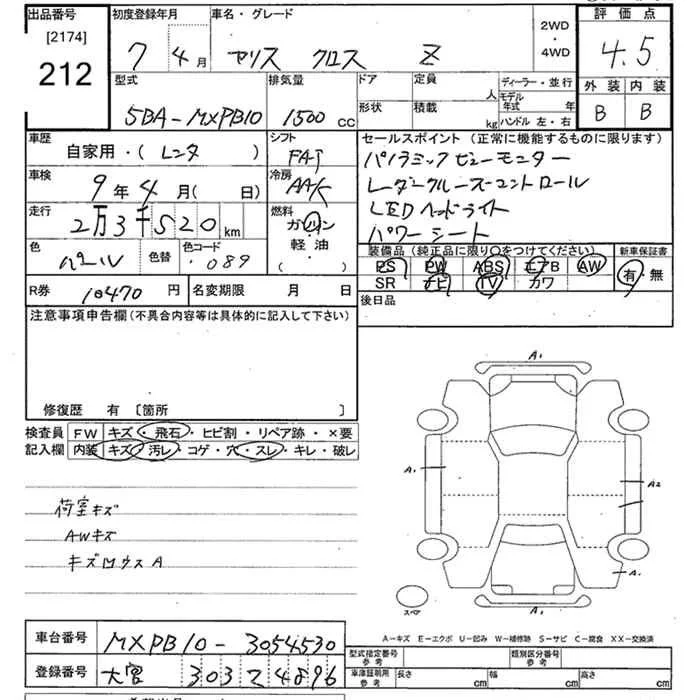 出品番号 初度登録年月 車名・グレード 2WD・4WD 評価点
[2174]
212 7 4月 ヤリス クロス Z 4.5
型式 排気量 ドア 定員 人 ディーラー・並行 外装 内装
5BA-MXPB10 1500cc 形状 積載 kg モデル年式 年 ハンドル 左・右 B B
車歴 自家用・(レンタ) シフト FAT セールスポイント(正常に機能するものに限ります)
車検 9年4月(日) 冷房 AAC パノラミックビューモニター
レーダークルーズコントロール
走行 2万3千520km 燃料 ガソリン LEDヘッドライト
軽油 パワーシート
( )
色 パール 色替 色コード ・089
装備品(純正品に限り○をつけてください) 新車保証書
PS PW ABS エアB AW 有・無
SR ナビ TV カワ
R券 10470円 名変期限 月 日 後日品
注意事項申告欄(不具合内容等は具体的に記入して下さい)
修復歴 有 〔箇所 〕
検査員 FW キズ・飛石・ヒビ割・リペア跡・×要
記入欄 内装 キズ・汚レ・コゲ・穴・スレ・キレ・破レ
荷室キズ
AWキズ
キズロウスA
A1
A1
A2
A1
A1
スペア
A-キズ E-エクボ U-凹み W-補修跡 S-サビ C-腐食 XX-交換済
車台番号 MXPB10-3054530
登録番号 大宮 303 て 4896
型式指定番号 参考 類別区分番号 参考
車庫証明用 参考 長さ cm 幅 cm 高さ cm